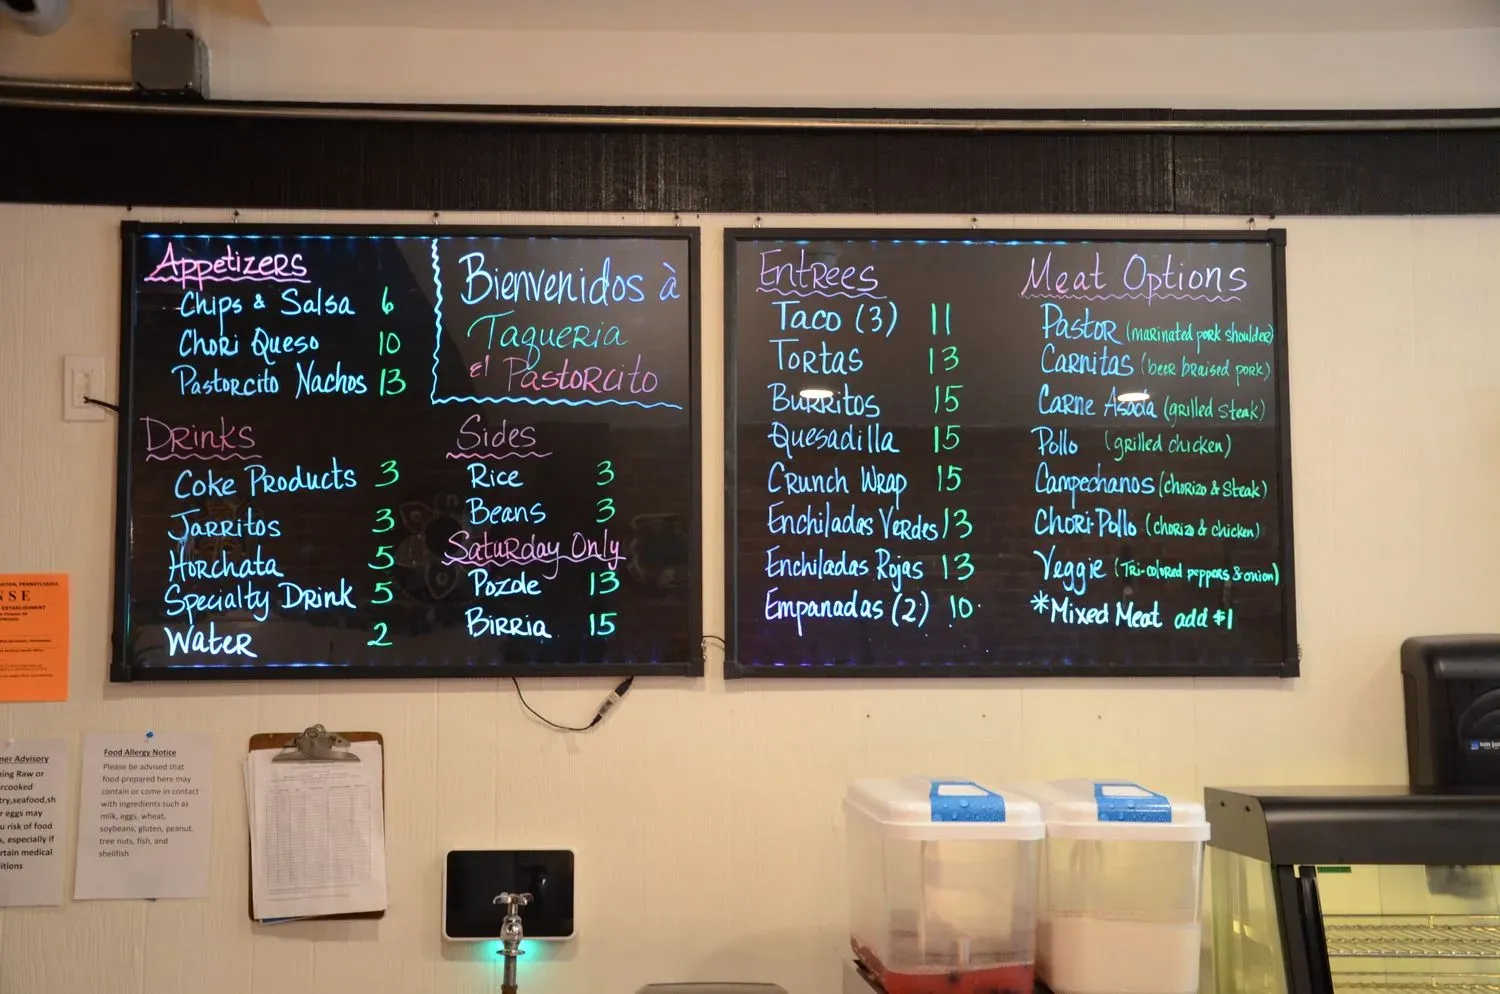 Appetizers
Chips & Salsa 6
Chori Queso 10
Pastorcito Nachos 13
Bienvenidos à
Taqueria
el Pastorcito
Drinks
Coke Products 3
Jarritos 3
Horchata 5
Specialty Drink 5
Water 2
Sides
Rice 3
Beans 3
Saturday Only
Pozole 13
Birria 15
Entrees
Taco (3) 11
Tortas 13
Burritos 15
Quesadilla 15
Crunch Wrap 15
Enchiladas Verdes 13
Enchiladas Rojas 13
Empanadas (2) 10
Meat Options
Pastor (marinated pork shoulder)
Carnitas (beer braised pork)
Carne Asada (grilled steak)
Pollo (grilled chicken)
Campechanos (chorizo & steak)
Chori-Pollo (chorizo & chicken)
Veggie (Tri-colored peppers & onion)
*Mixed Meat add $1
TON, PENNSYLVANIA
NSE
ESTABLISHMENT
ner Advisory
ning Raw or
rcooked
try,seafood,sh
r eggs may
u risk of food
s, especially if
rtain medical
itions
Food Allergy Notice
Please be advised that
food prepared here may
contain or come in contact
with ingredients such as
milk, eggs, wheat,
soybeans, gluten, peanut,
tree nuts, fish, and
shellfish